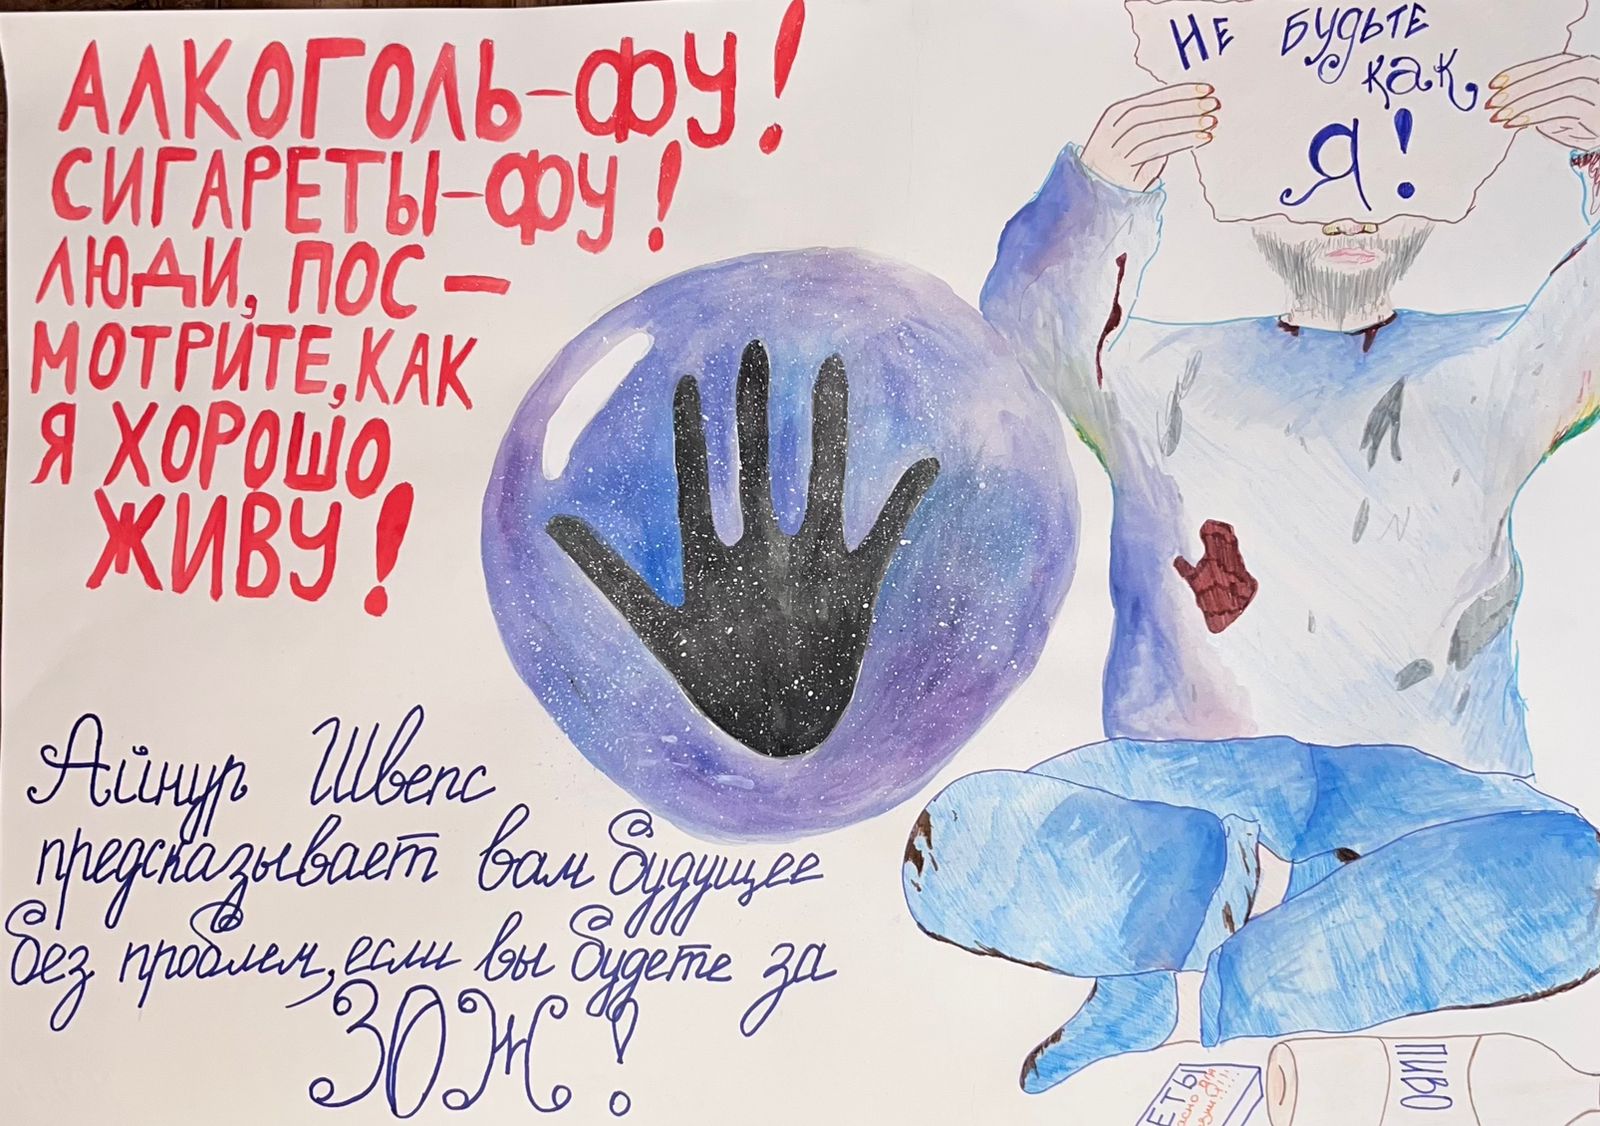 АЛКОГОЛЬ-ФУ!
СИГАРЕТЫ-ФУ!
ЛЮДИ, ПОС-
МОТРИТЕ, КАК
Я ХОРОШО
ЖИВУ!
Айнур Швепс
предсказывает вам будущее
без проблем, если вы будете за
ЗОЖ!
НЕ БУДЬТЕ
как
Я!
ЕТЫ
ПИВО